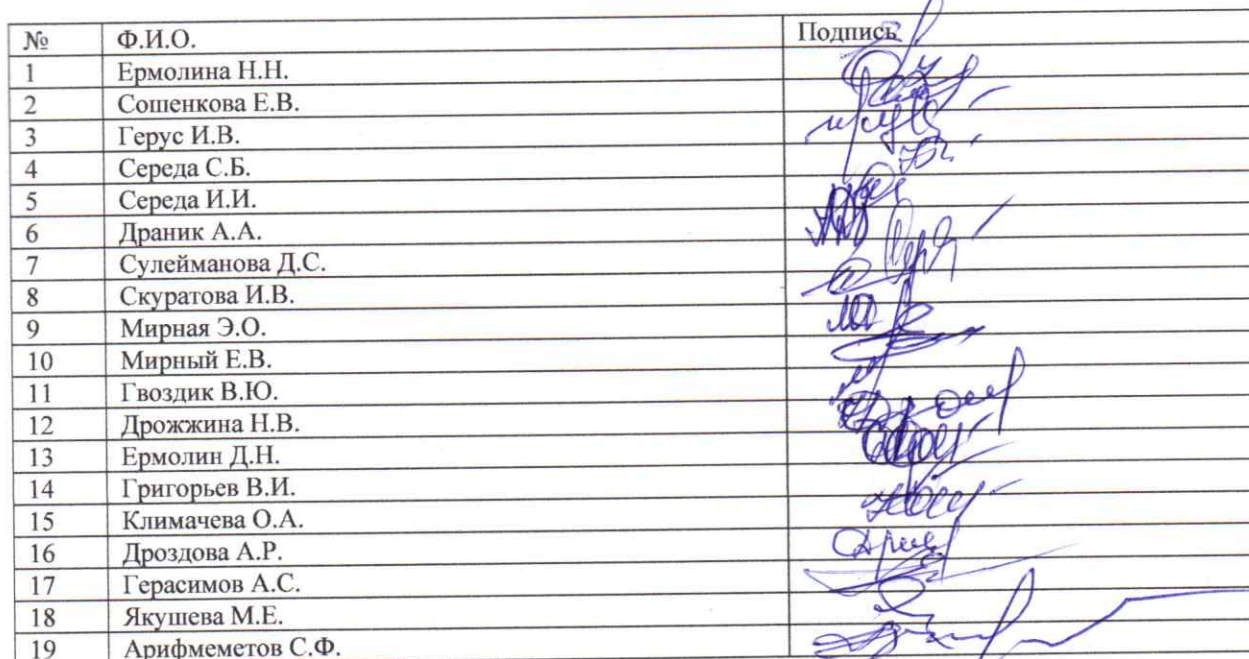 № Ф.И.О. Подпись
1 Ермолина Н.Н.
2 Сошенкова Е.В.
3 Герус И.В.
4 Середа С.Б.
5 Середа И.И.
6 Драник А.А.
7 Сулейманова Д.С.
8 Скуратова И.В.
9 Мирная Э.О.
10 Мирный Е.В.
11 Гвоздик В.Ю.
12 Дрожжина Н.В.
13 Ермолин Д.Н.
14 Григорьев В.И.
15 Климачева О.А.
16 Дроздова А.Р.
17 Герасимов А.С.
18 Якушева М.Е.
19 Арифмеметов С.Ф.